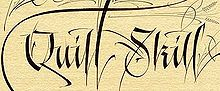 Quill Skill